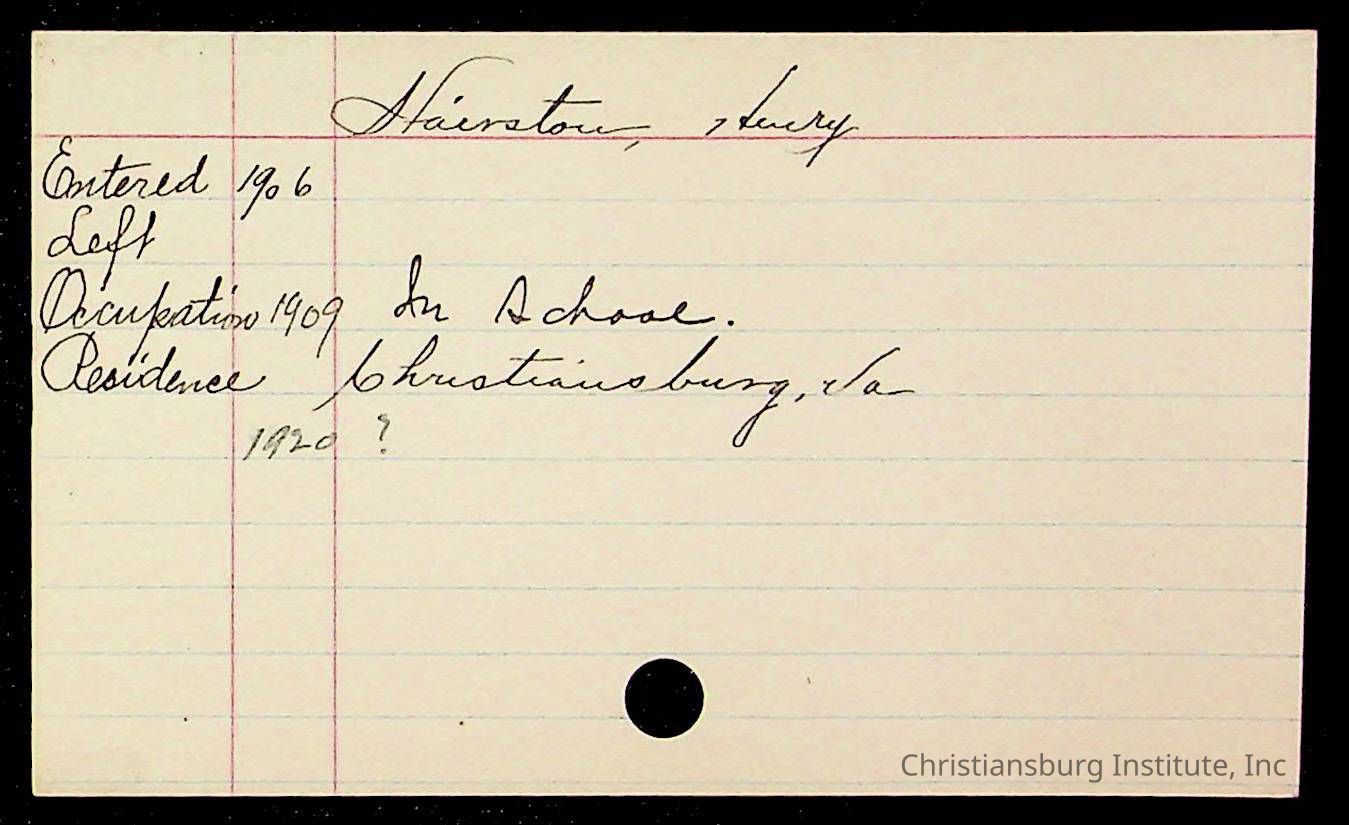 Hairston, Henry
Entered 1906
Left
Occupation 1909 In School.
Residence Christiansburg, Va
1920 ?
Christiansburg Institute, Inc